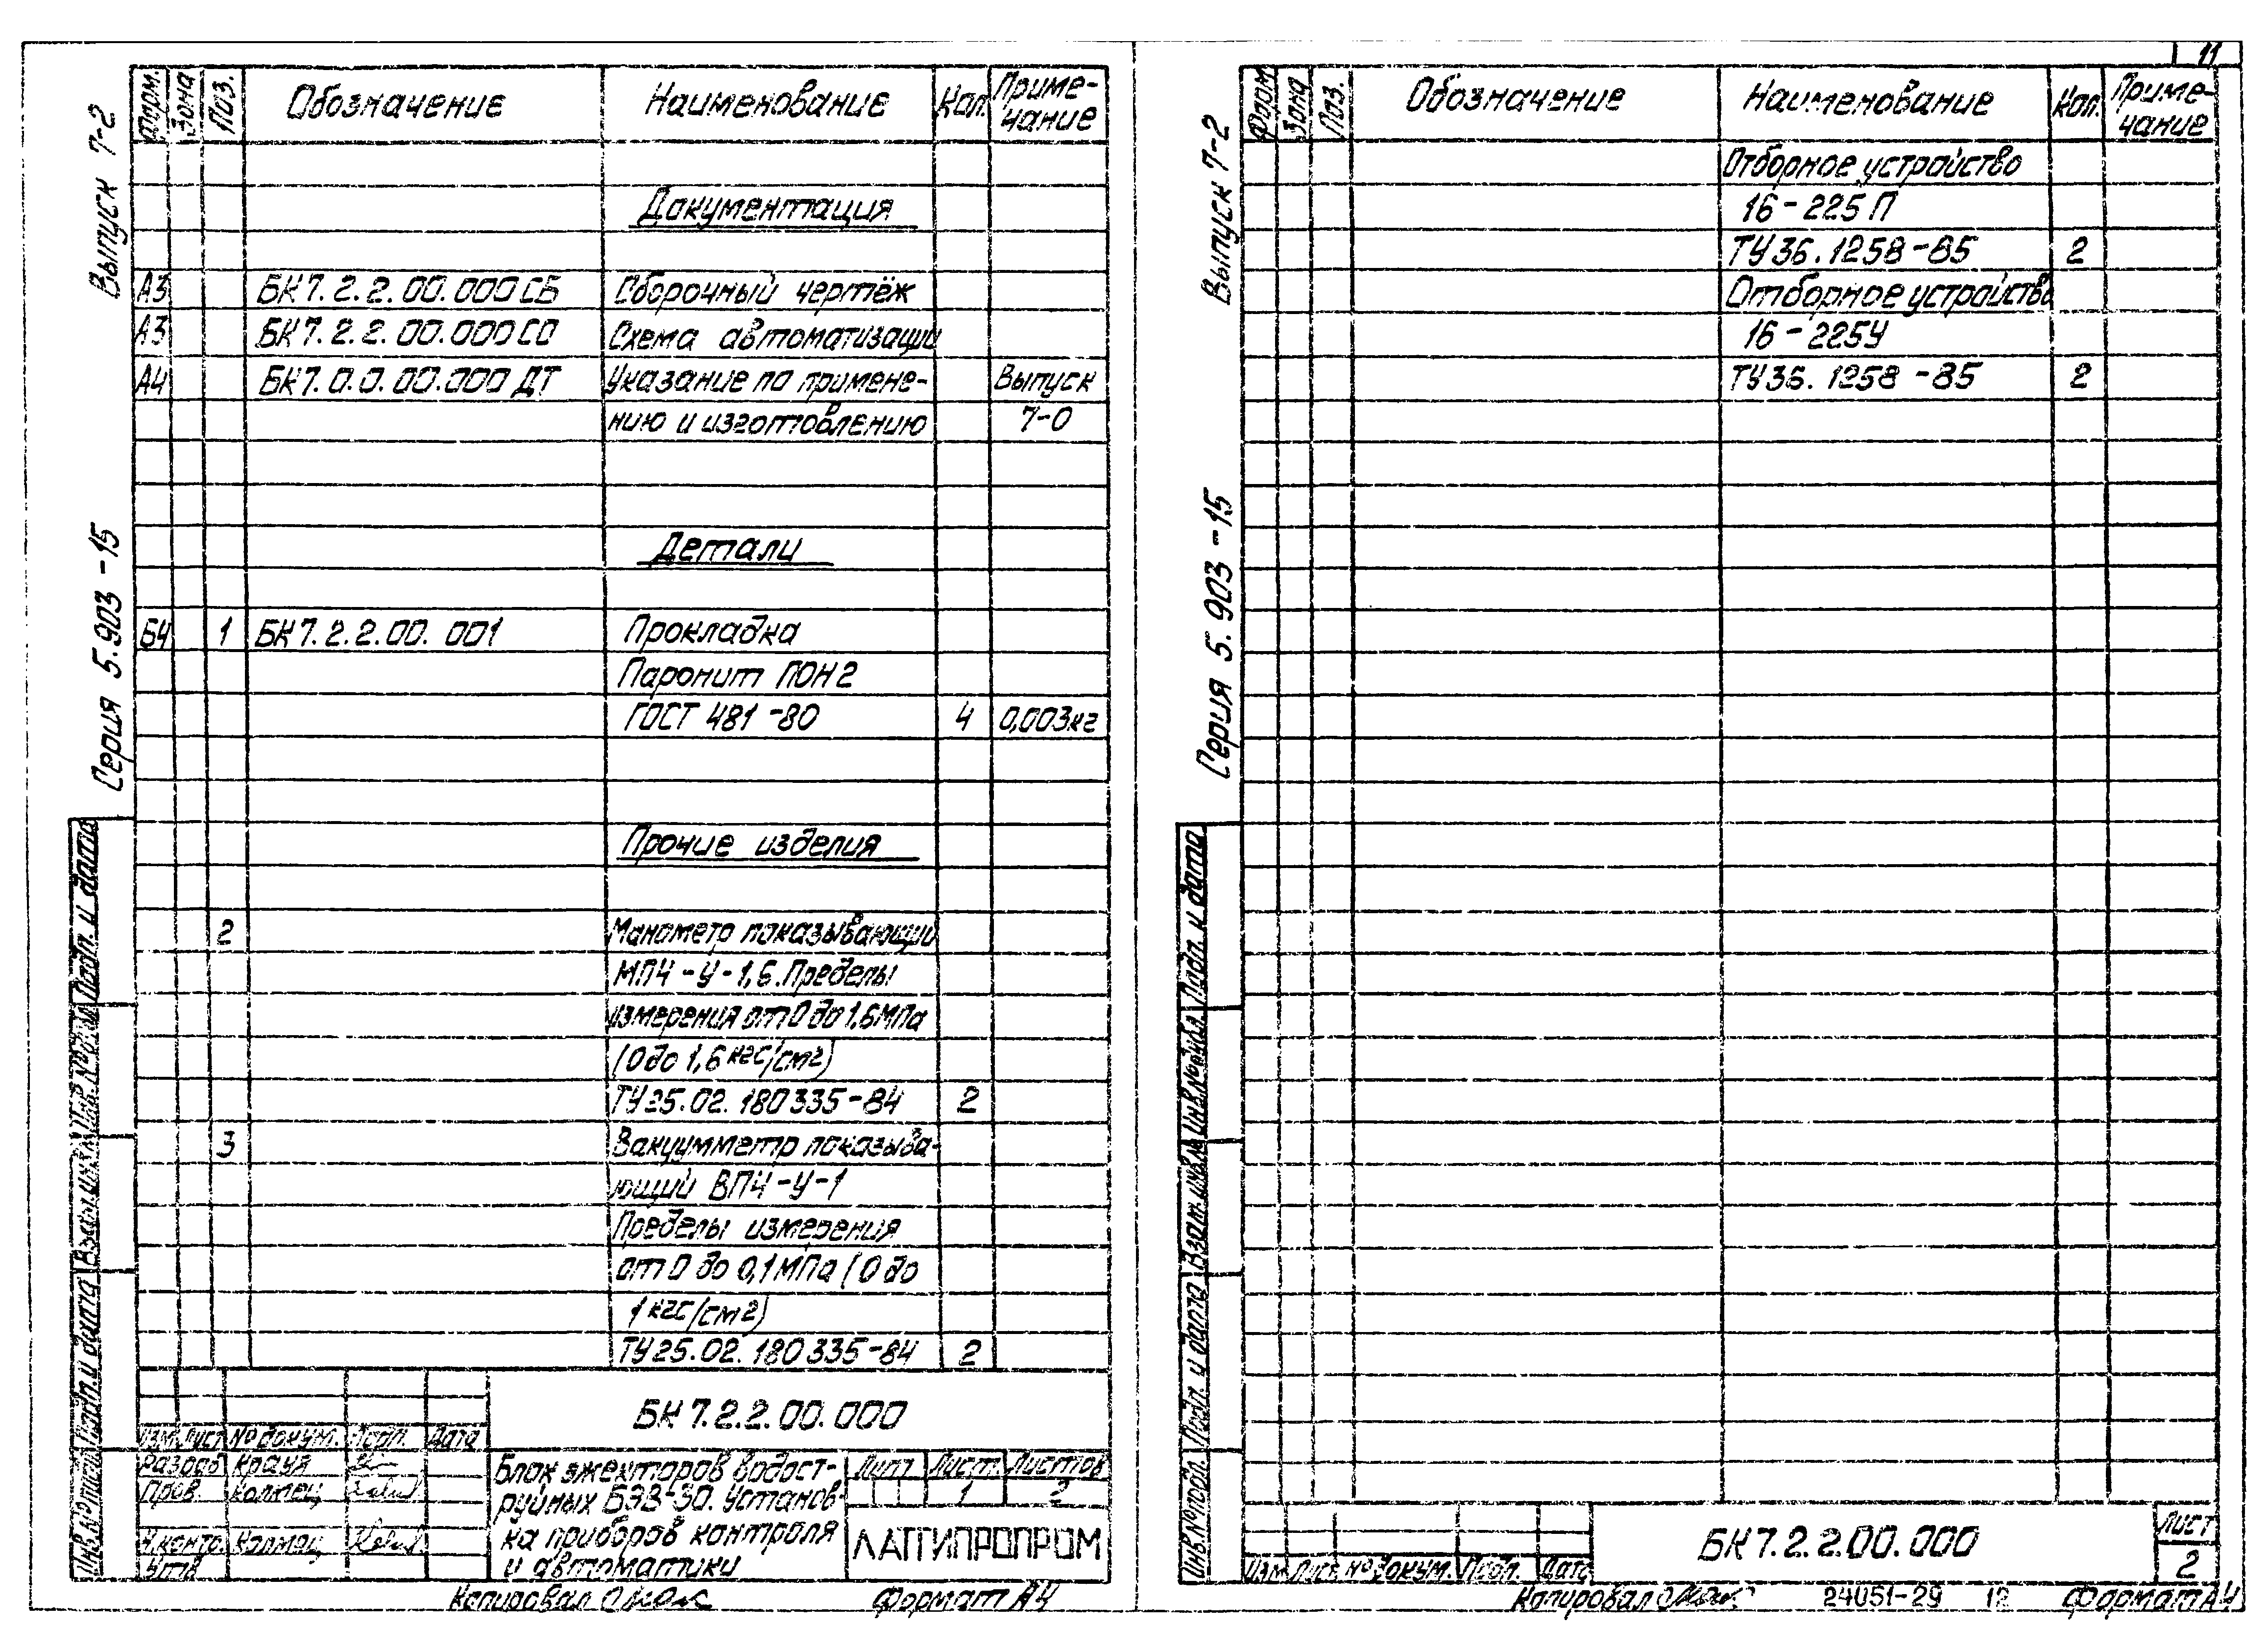 11
Выпуск 7-2
Серия 5.903-15
Форм. Зона Поз. Обозначение Наименование Кол. Приме-
чание
Документация
А3 БК7.2.2.00.000СБ Сборочный чертёж
А3 БК7.2.2.00.000СО Схема автоматизации
А4 БК7.0.0.00.000 ДТ Указание по примене- Выпуск
нию и изготовлению 7-0
Детали
Б4 1 БК7.2.2.00.001 Прокладка
Паронит ПОН2
ГОСТ 481-80 4 0,003кг
Прочие изделия
2 Манометр показывающий
МП4-У-1,6. Пределы
измерения от 0 до 1,6МПа
(0 до 1,6 кгс/см2)
ТУ25.02.180335-84 2
3 Вакуумметр показыва-
ющий ВП4-У-1
Пределы измерения
от 0 до 0,1МПа (0 до
1 кгс/см2)
ТУ25.02.180335-84 2
Подп. и дата
Инв.№дубл.
Взам.инв.№
Подп. и дата
Инв.№подл.
БК7.2.2.00.000
Изм. Лист №докум. Подп. Дата
Разраб Крауя
Пров. Колмец
Н.контр. Колмец
Утв
Блок эжекторов водост-
руйных БЭВ-30. Установ-
ка приборов контроля
и автоматики
Лит Лист. Листов
1 2
ЛАТГИПРОПРОМ
Копировал Формат А4
Выпуск 7-2
Серия 5.903-15
Форм Зона Поз. Обозначение Наименование Кол. Приме-
чание
Отборное устройство
16-225П
ТУ36.1258-85 2
Отборное устройство
16-225У
ТУ36.1258-85 2
Подп. и дата
Инв.№дубл.
Взам.инв.№
Подп. и дата
Инв.№подл.
Изм. Лист №докум. Подп. Дата
БК7.2.2.00.000
Лист
2
Копировал 24051-29 12 Формат А4